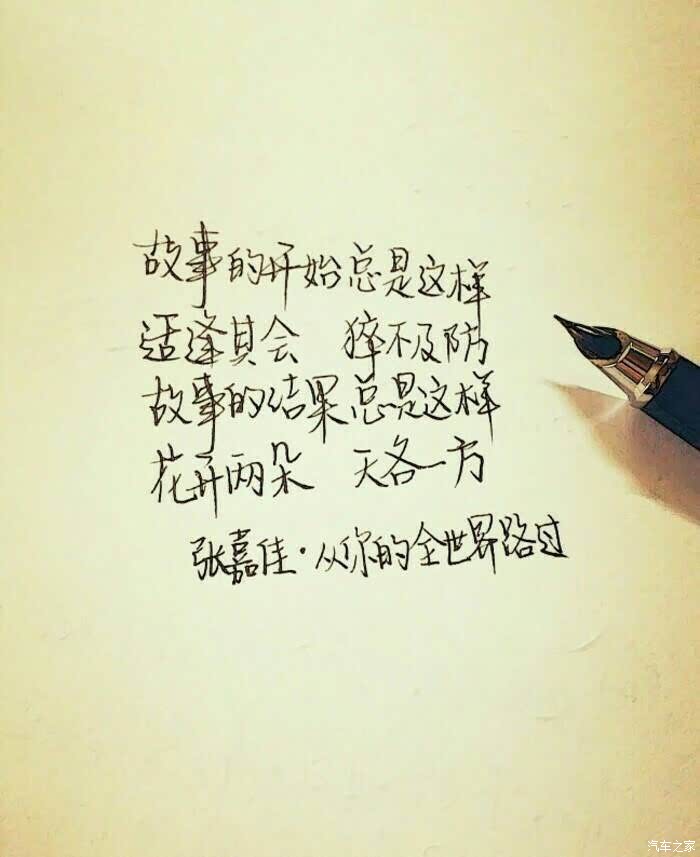 故事的开始总是这样
适逢其会 猝不及防
故事的结果总是这样
花开两朵 天各一方
张嘉佳·从你的全世界路过
汽车之家